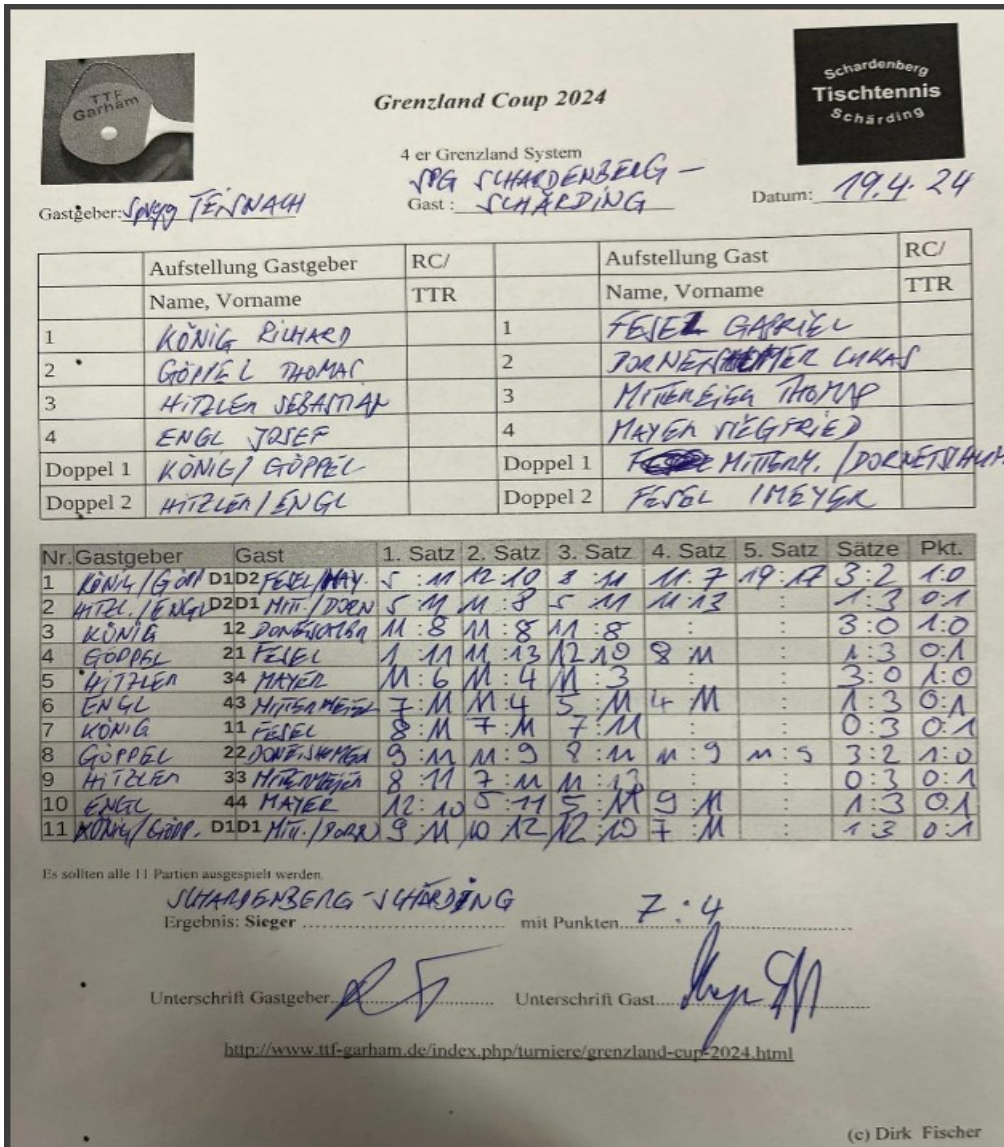 TTF
Garham
Schardenberg
Tischtennis
Schärding
Grenzland Coup 2024
4 er Grenzland System
Gastgeber: SpVgg TEISNACH
Gast: SPG SCHARDENBERG – SCHÄRDING
Datum: 19.4.24
Aufstellung Gastgeber RC/ Aufstellung Gast RC/
Name, Vorname TTR Name, Vorname TTR
1 KÖNIG RICHARD 1 FESEL GABRIEL
2 GÖPPEL THOMAS 2 LUKAS
3 HITZLER SEBASTIAN 3 THOMAS
4 ENGL JOSEF 4 MAYER SIEGFRIED
Doppel 1 KÖNIG/GÖPPEL Doppel 1 MITTERM. /
Doppel 2 HITZLER/ENGL Doppel 2 FESEL / MEYER
Nr. Gastgeber Gast 1. Satz 2. Satz 3. Satz 4. Satz 5. Satz Sätze Pkt.
1 KÖNIG/GÖPP D1 D2 FESEL/MAY. 5:11 12:10 8:11 11:7 19:17 3:2 1:0
2 HITZL./ENGL D2 D1 MITT./DORN 5:11 11:8 5:11 11:13 : 1:3 0:1
3 KÖNIG 1 2 11:8 11:8 11:8 : : 3:0 1:0
4 GÖPPEL 2 1 FESEL 1:11 11:13 12:10 8:11 : 1:3 0:1
5 HITZLER 3 4 MAYER 11:6 11:4 11:3 : : 3:0 1:0
6 ENGL 4 3 7:11 11:4 5:11 4:11 : 1:3 0:1
7 KÖNIG 1 1 FESEL 8:11 7:11 7:11 : : 0:3 0:1
8 GÖPPEL 2 2 9:11 11:9 8:11 11:9 11:5 3:2 1:0
9 HITZLER 3 3 8:11 7:11 11:13 : : 0:3 0:1
10 ENGL 4 4 MAYER 12:10 5:11 5:11 9:11 : 1:3 0:1
11 KÖNIG/GÖPP. D1 D1 MITT./DORN 9:11 10:12 12:10 7:11 : 1:3 0:1
Es sollten alle 11 Partien ausgespielt werden.
SCHARDENBERG-SCHÄRDING
Ergebnis: Sieger .......................... mit Punkten 7:4
Unterschrift Gastgeber
Unterschrift Gast
http://www.ttf-garham.de/index.php/turniere/grenzland-cup-2024.html
(c) Dirk Fischer